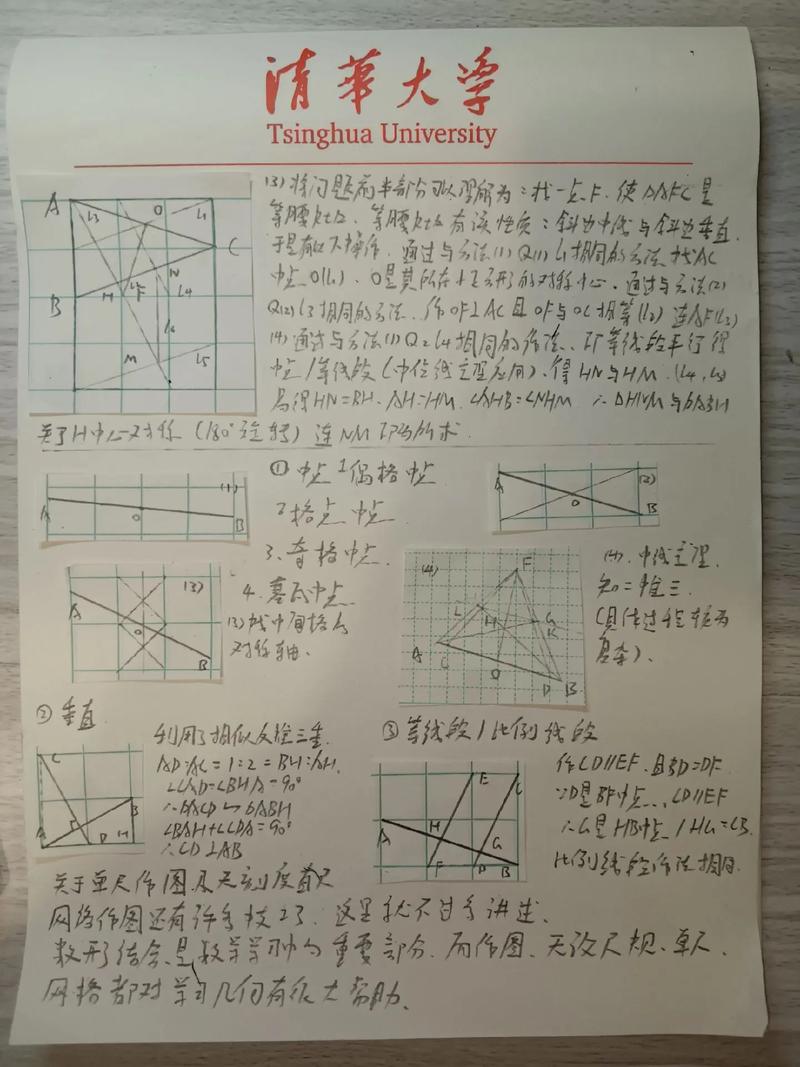 清華大学
Tsinghua University
(3)将问题前半部分可以理解为:找一点F.使△AFC是
等腰Rt△.等腰Rt△有该性质:斜边中线与斜边垂直.
于是有以下操作.通过与方法(1)Q(1)l₁相同的方法找AC
中点O(l₁).O是其所在小正方形的对称中心.通过与方法(2)
Q(2)l₃相同的方法.作OF⊥AC且OF与OC相等(l₂)连AF(l₃)
(4)通过与方法(1)Q2l₄相同的作法、即等线段平行得
中点/等线段(中位线定理应用).得HN与HM.(l₄,l₅)
易得HN=BH.AH=HM.∠AHB=∠NHM ∴△HNM与△ABH
关于H中心对称(180°旋转)连NM即为所求.
A
O
l₁
l₃
C
B
H
F
N
l₄
M
l₅
①中点1偶格中点
2格点中点
3、奇格中点
4.
(3)找中间格为
对称轴.
A
O
B
(1)
A
O
B
(2)
A
O
B
(3)
(4)
F
L
H
G
K
A
C
O
D
B
(4).中线定理.
知二推三
(具体过程较为
复杂).
②垂直
利用了相似反推三垂.
AD:AC=1:2=BH:AH.
∠CAD=∠BHA=90°
∴△ACD∽△ABH
∠BAH+∠CDA=90°
∴CD⊥AB
C
B
E
A
D
H
③等线段/比例线段
作CD∥EF.且BD=DF.
∵D是BF中点、CD∥EF
∴G是HB中点/HG=GB.
比例线段作法相同.
E
C
A
H
G
F
D
B
关于单尺作图及无刻度直尺
网格作图还有许多技巧.这里就不过多讲述.
数形结合是数学学习中的重要部分.而作图、无论尺规、单尺、
网格都对学习几何有很大帮助.